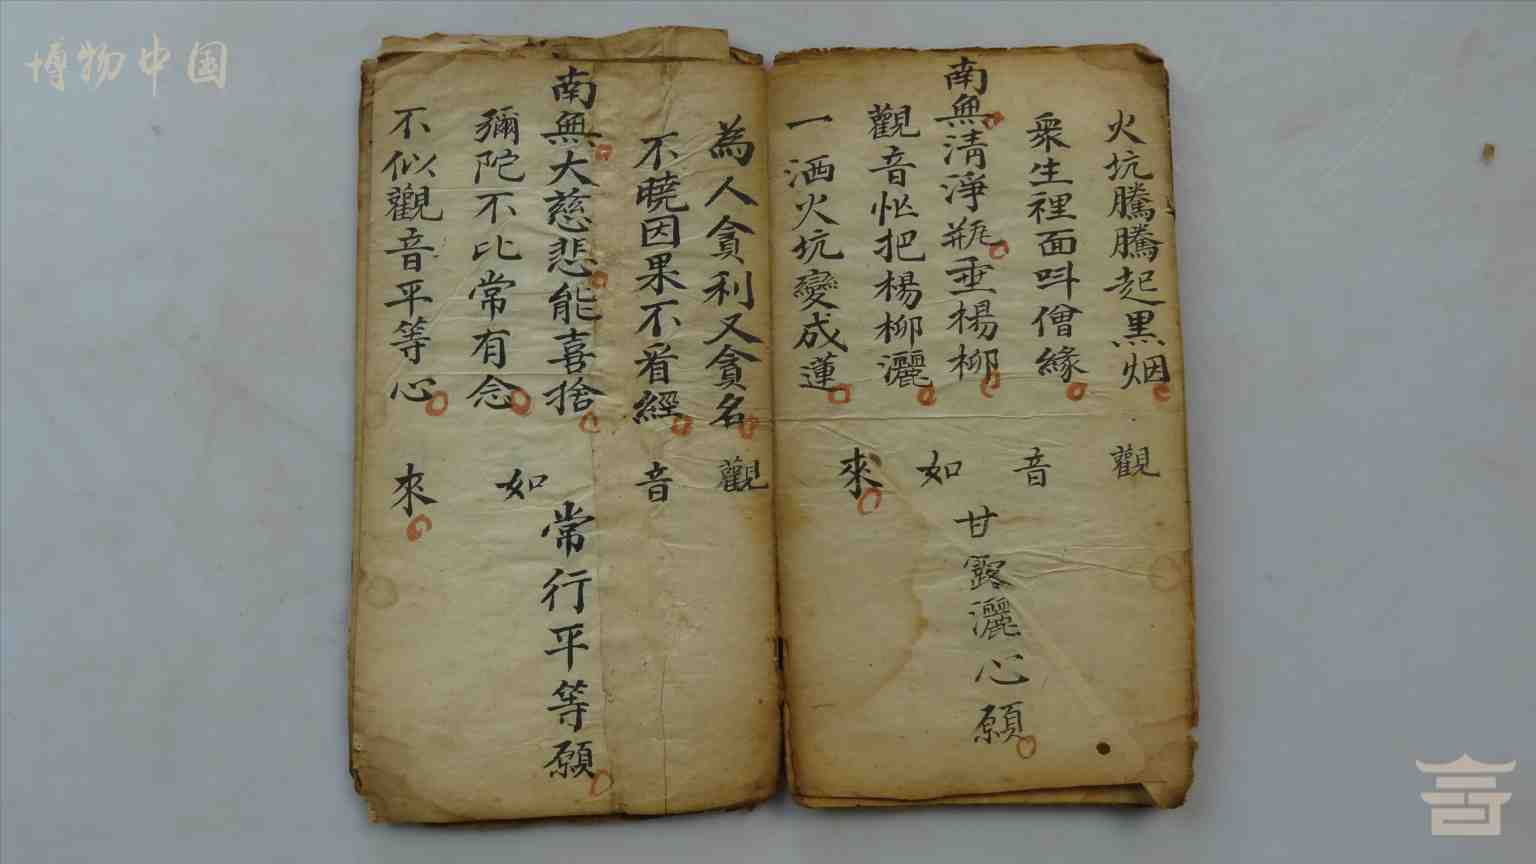 博物中国
火坑騰騰起黑烟
眾生裡面呌僧緣
南無清淨瓶垂楊柳
觀音恠把楊柳灑
一洒火坑變成蓮
觀音如來
甘露灑心願
為人貪利又貪名
不曉因果不看經
南無大慈悲能喜捨
彌陀不比常有念
不似觀音平等心
觀音如來
常行平等願